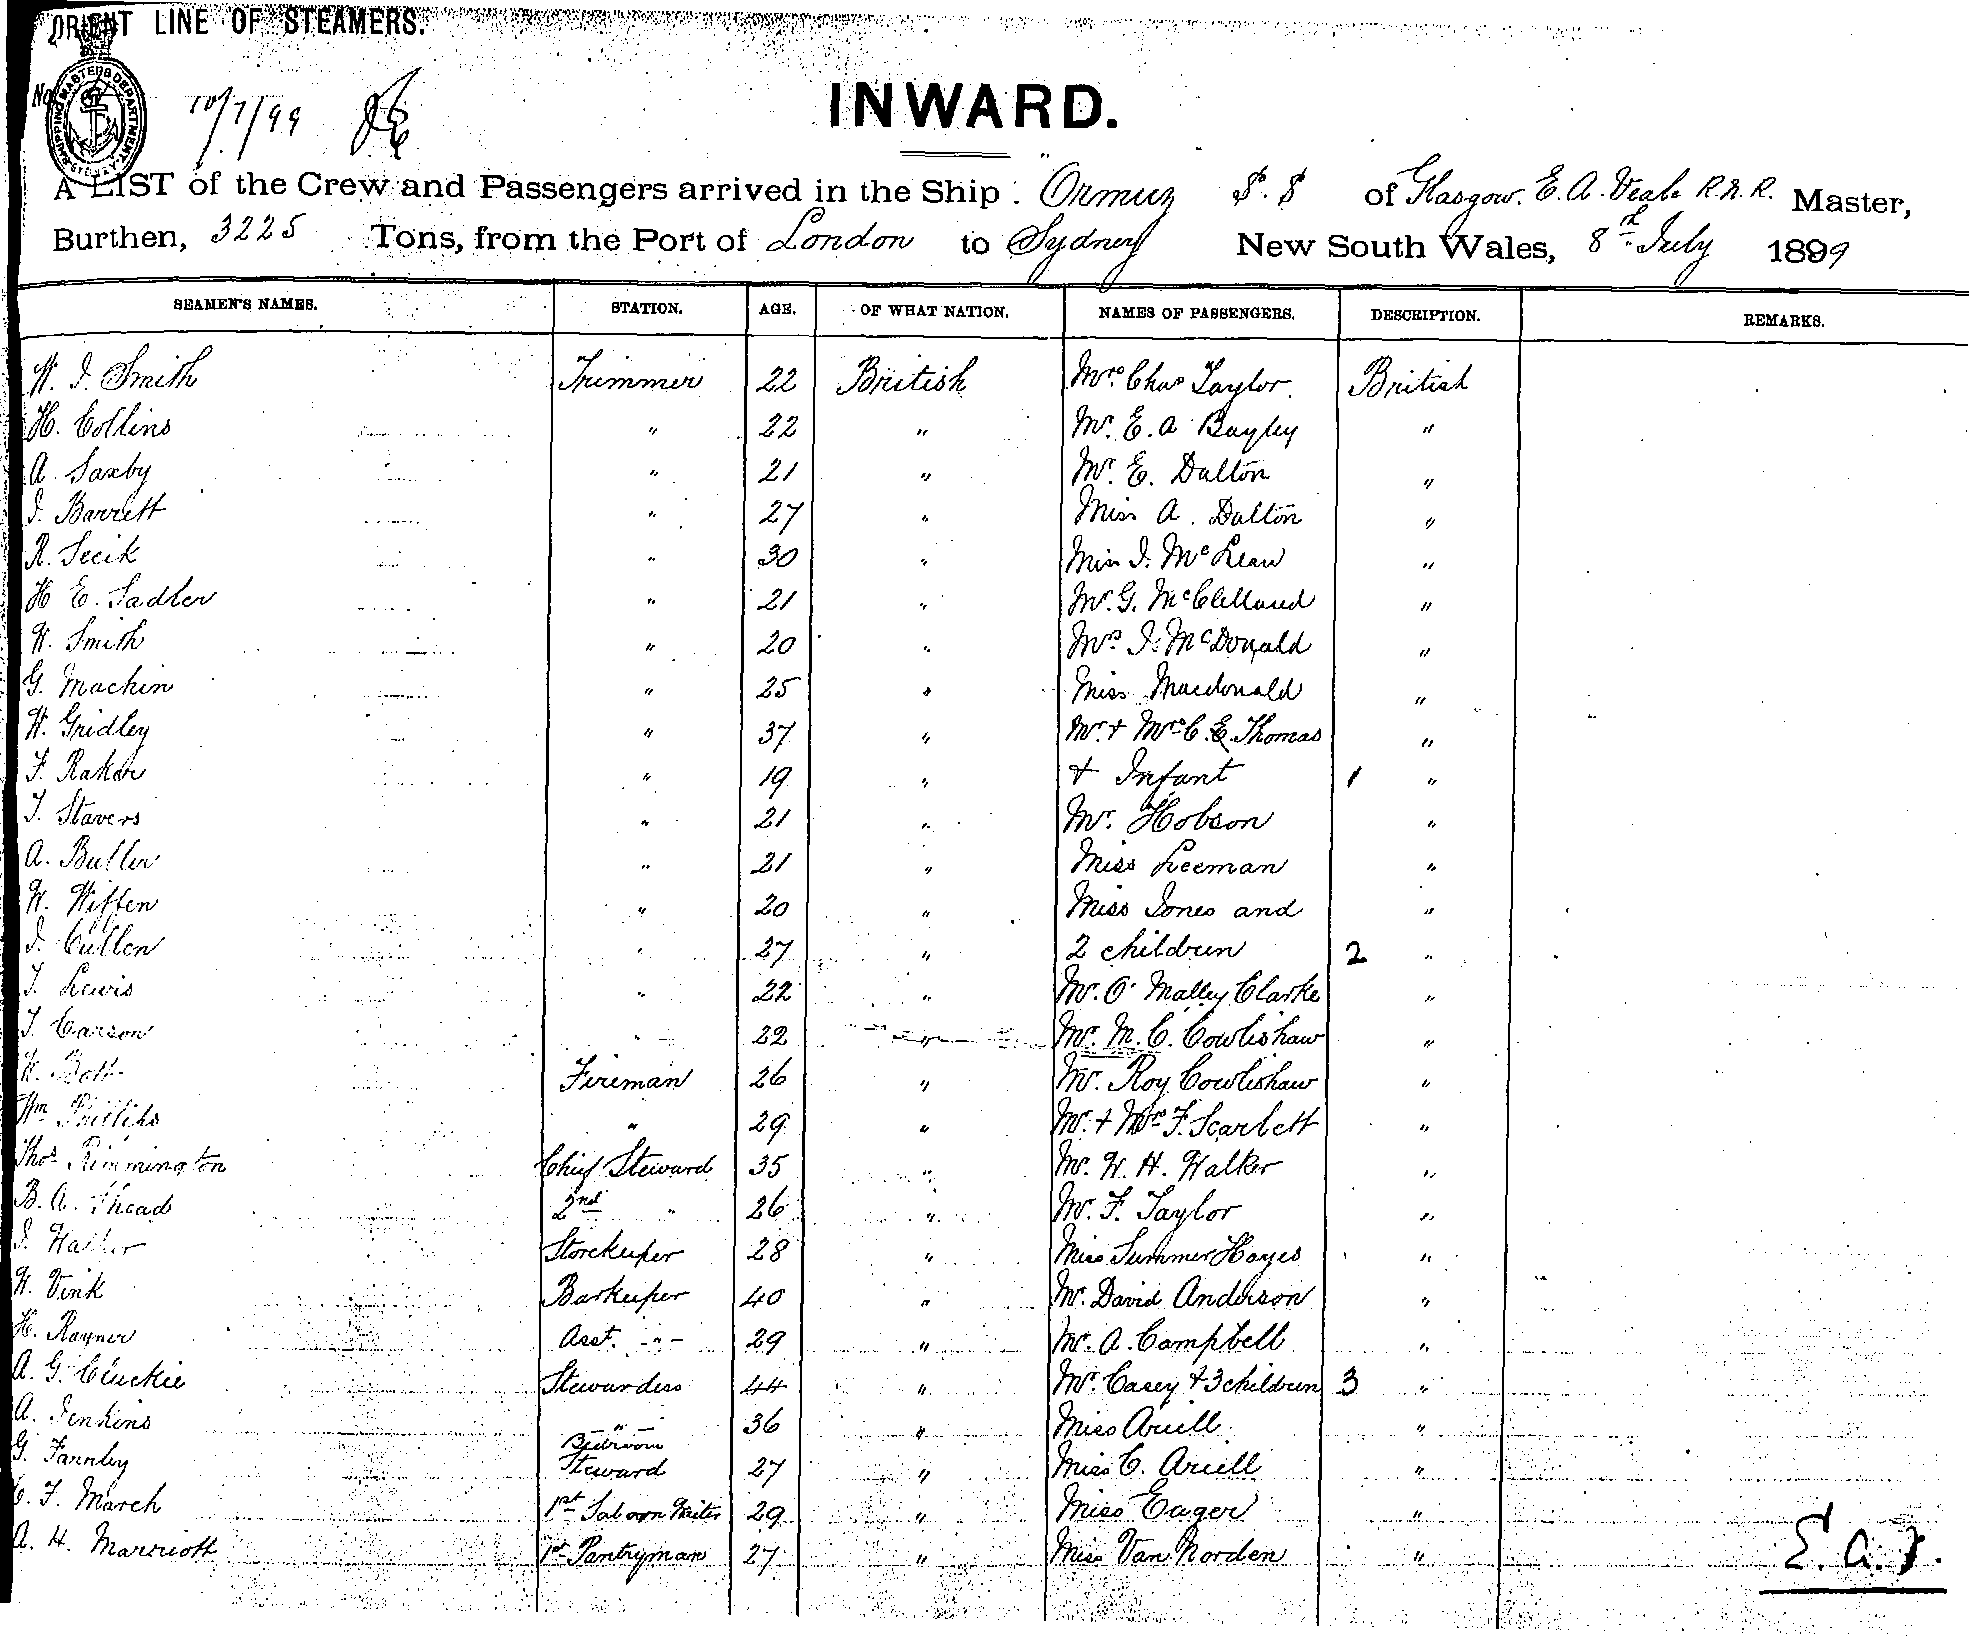 ORIENT LINE OF STEAMERS.
No.
SHIPPING MASTERS DEPARTMENT SYDNEY
10/7/99
INWARD.
A LIST of the Crew and Passengers arrived in the Ship Ormuz S.S of Glasgow. E. A. Veale R.N.R. Master,
Burthen, 3225 Tons, from the Port of London to Sydney New South Wales, 8th July 1899
SEAMEN'S NAMES. STATION. AGE. OF WHAT NATION. NAMES OF PASSENGERS. DESCRIPTION. REMARKS.
W. J. Smith Trimmer 22 British Mrs Chas Taylor. British
H. Collins " 22 " Mr. E. A Bayley "
A. Saxby " 21 " Mr. E. Dalton "
J. Barrett " 27 " Miss A. Dalton "
R. " 30 " Miss J. McLean "
H E. Sadler " 21 " Mr. G. McClelland "
W. Smith " 20 " Mrs J. McDonald "
G. Machin " 25 " Miss Macdonald "
W. Gridley " 37 " Mr. + Mrs C. E. Thomas "
F. Raker " 19 " + Infant 1 "
T. Stavers " 21 " Mr. Hobson "
A. Butler " 21 " Miss Leeman "
W. Wiffen " 20 " Miss Jones and "
J. Cullen " 27 " 2 children 2 "
T. Lewis " 22 " Mr. O'Malley Clarke "
T. Carson " 22 " Mr. M. C. Cowlishaw "
W. Fireman 26 " Mr. Roy Cowlishaw "
Wm Phillips " 29 " Mr. + Mrs F. Scarlett "
Thos Rimmington Chief Steward 35 " Mr. W. H. Walker "
B. A. 2nd " 26 " Mr. F. Taylor "
J. Walker Storekeeper 28 " Miss Summer Hayes "
W. Vink Barkeeper 40 " Mr. David Anderson "
H. Rayner Asst. -"- 29 " Mr. A. Campbell "
A. G. Cluckie Stewardess 44 " Mr. Casey + 3 children 3 "
A. Jenkins " 36 " Miss Ariell "
G. Fannley Bedroom Steward 27 " Miss C. Ariell "
C. F. March 1st Saloon Waiter 29 " Miss Eager "
A. H. Marriott 1st Pantryman 27 " Miss Van Norden "